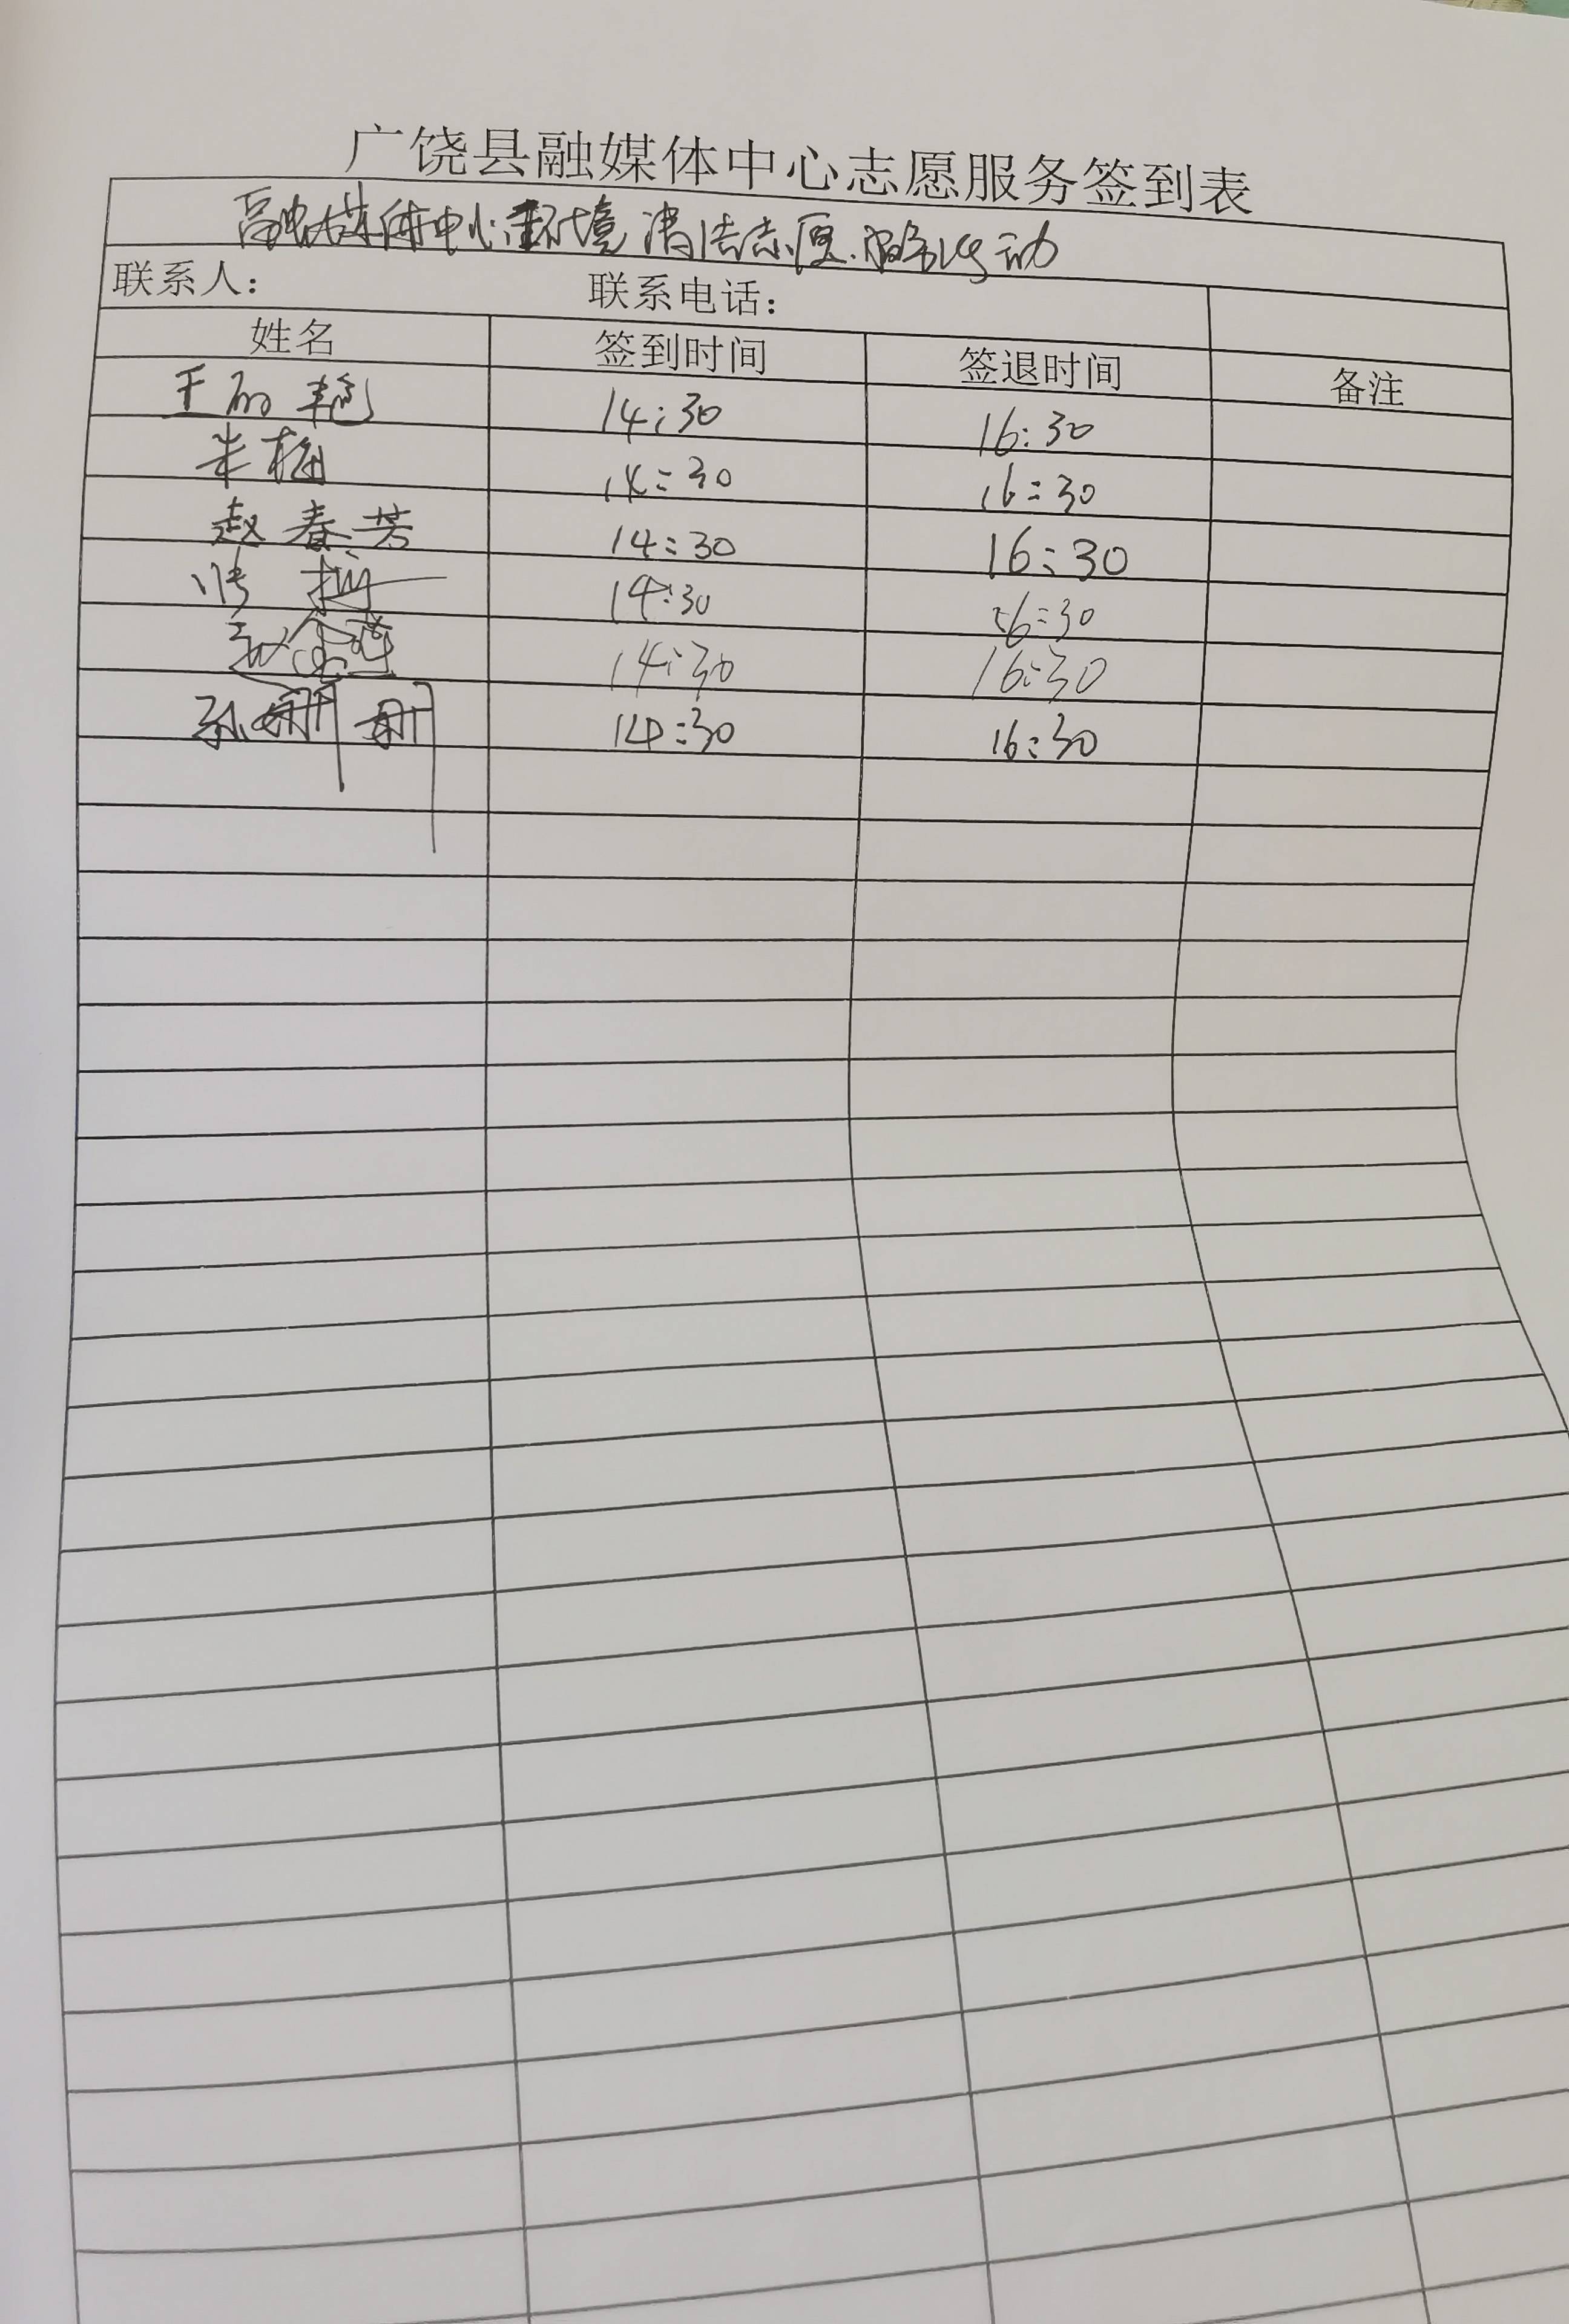 广饶县融媒体中心志愿服务签到表
融媒体中心环境清洁志愿服务活动
联系人： 联系电话：
姓名 签到时间 签退时间 备注
王丽艳 14:30 16:30
朱梅 14:30 16:30
赵春芳 14:30 16:30
张 14:30 16:30
14:30 16:30
孙册册 14:30 16:30